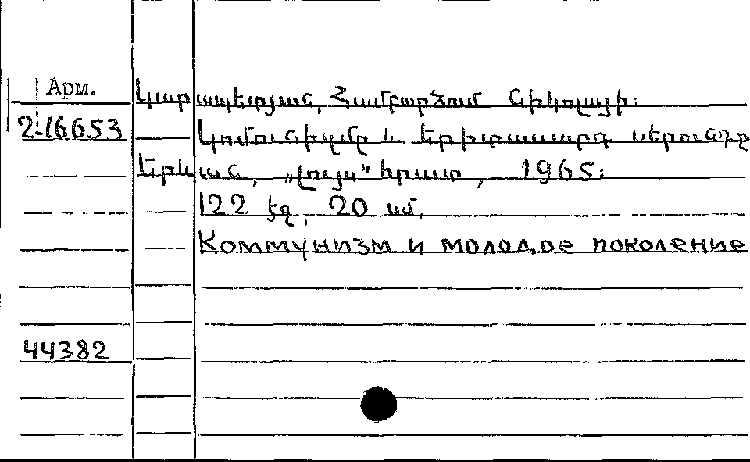 Арм.
Կարապետյան, Համբարձում Նիկոլայի:
2-16653
Կոմունիզմը և երիտասարդ սերունդը
Երևան, „Լույս" հրատ, 1965:
122 էջ, 20 սմ,
Коммунизм и молодое поколение
44382